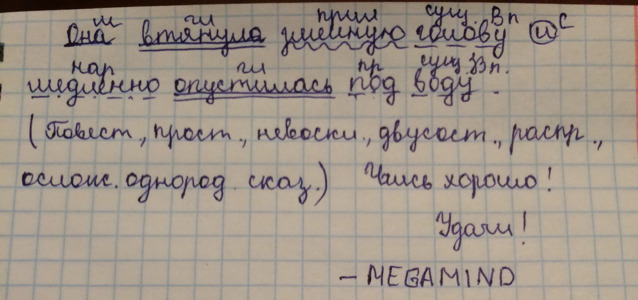 м гл прил сущ Вп с
Она втянула змеиную голову и
нар гл пр сущ.Вп.
медленно опустилась под воду.
(Повест., прост., невоскл., двусост., распр.,
ослож. однород. сказ.) Учись хорошо!
Удачи!
- MEGAMIND